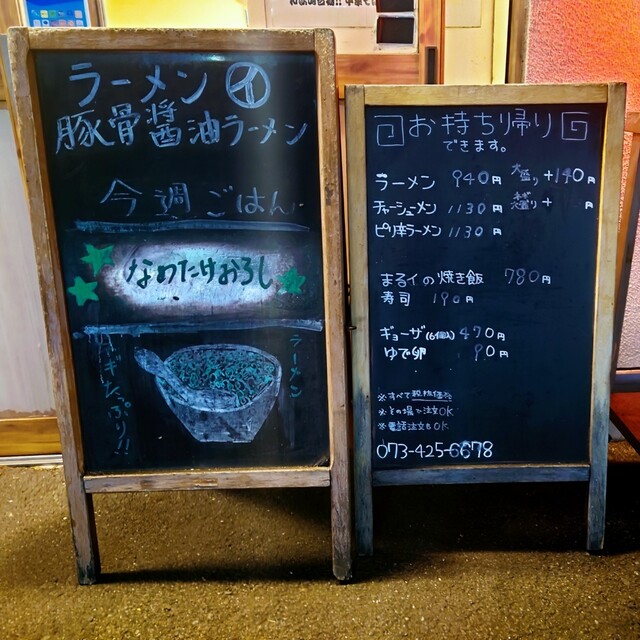 ラーメン ㋑
豚骨醤油ラーメン
今週ごはん
なめたけおろし
ラーメン
ネギたっぷり!!
お持ち帰り
できます。
ラーメン 940円 大盛り+140円
チャーシューメン 1130円 ネギ大盛り+ 円
ピリ辛ラーメン 1130円
まるイの焼き飯 780円
寿司 190円
ギョーザ(6個入) 470円
ゆで卵 90円
※すべて税抜価格
※その場で注文OK
※電話注文もOK
073-425-6678